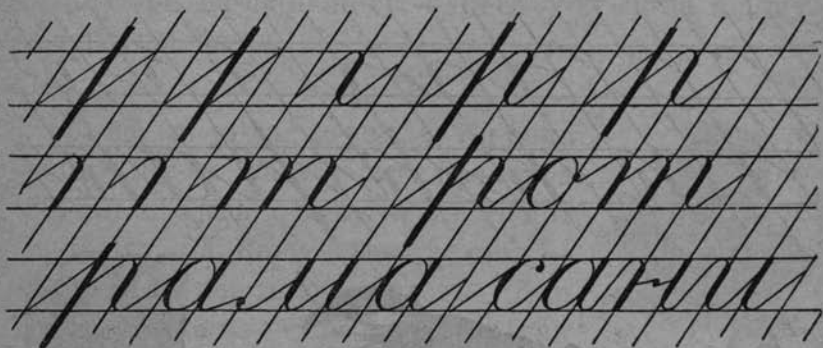 р р
т рот
рама сани